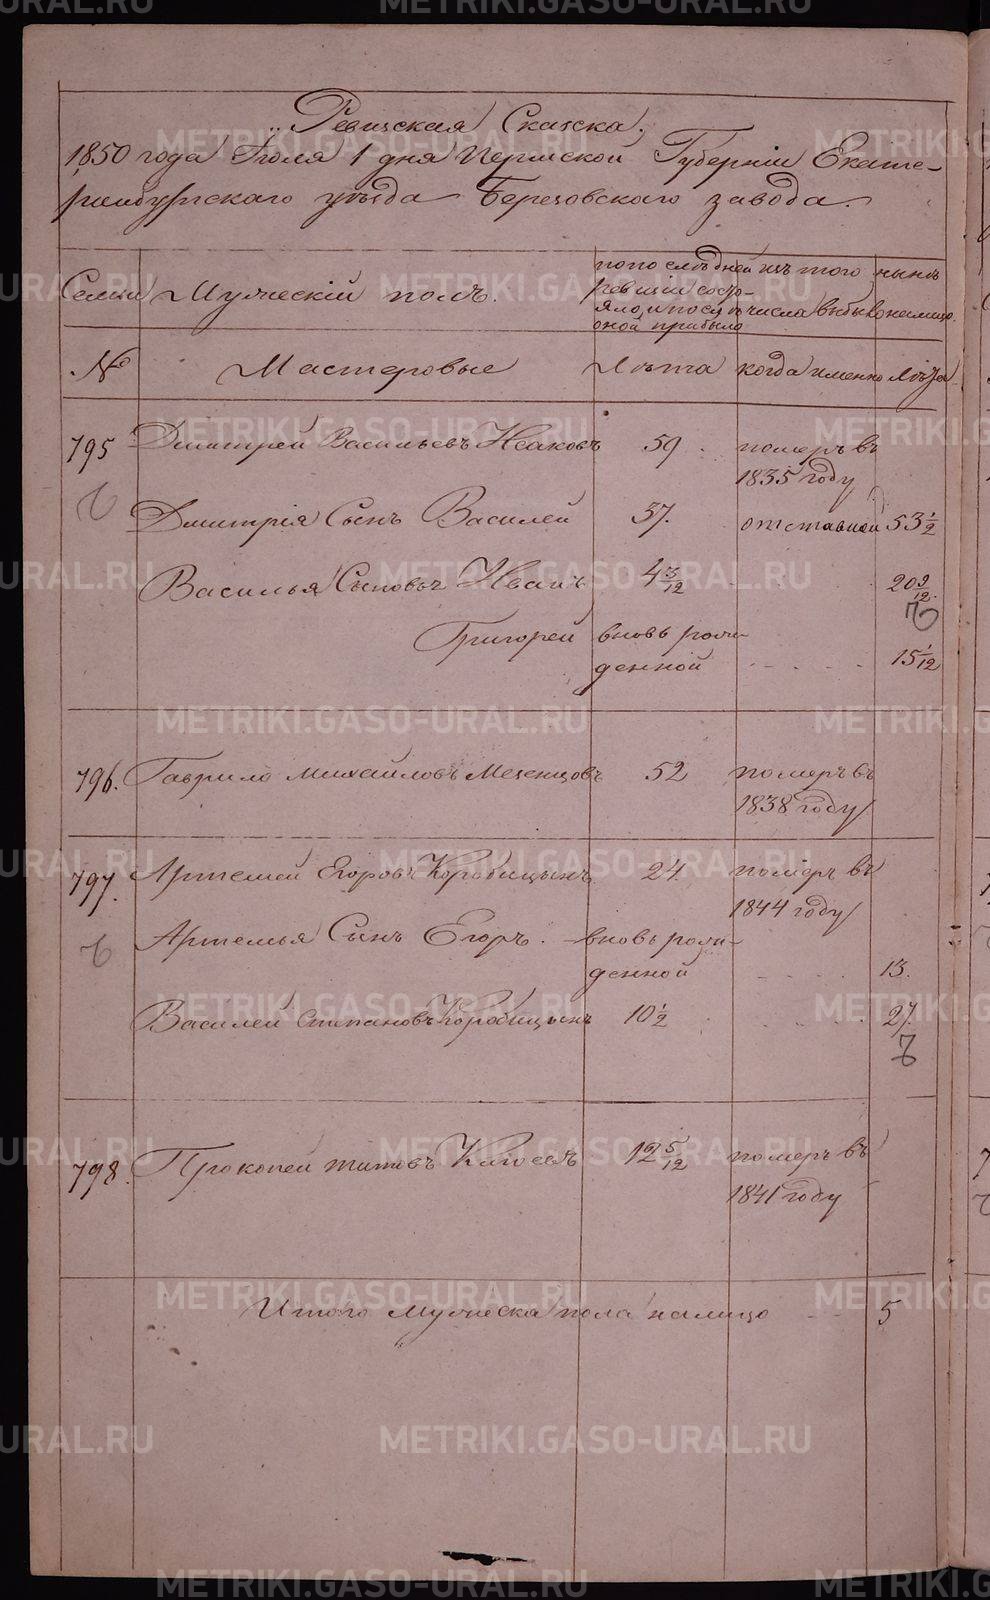 „Ревизская Сказка.
1850 года Июля 1 дня Пермской Губернiи Екате-
ринбургского уѣзда Березовского завода.
Семьи Мужескiй полъ.
по последней ревизiи состо-
яло, и после оной прибыло
изъ того числа выбыло
нынѣ на лицо
№ Мастеровые Лѣта когда именно Лѣта
795 Дмитрей Васильевъ Исаковъ 59 померъ въ
1835 году
Дмитрiя Сынъ Василей 37. отставной 53 1/2
Василья Сыновья Иванъ 4 3/12 20 9/12
Григорей вновь рож-
денной 15 1/12
796. Гаврило Михайловъ Мезенцовъ 52 померъ въ
1838 году
797. Артемей Егоровъ Коробицынъ 24 померъ въ
1844 году
Артемья Сынъ Егоръ. вновь рож-
денной 13.
Василей Степановъ Коробицынъ 10 1/2 27.
798. Прокопей Титовъ 12 5/12 померъ въ
1841 году
Итого мужеска пола налицо 5
METRIKI.GASO-URAL.RU